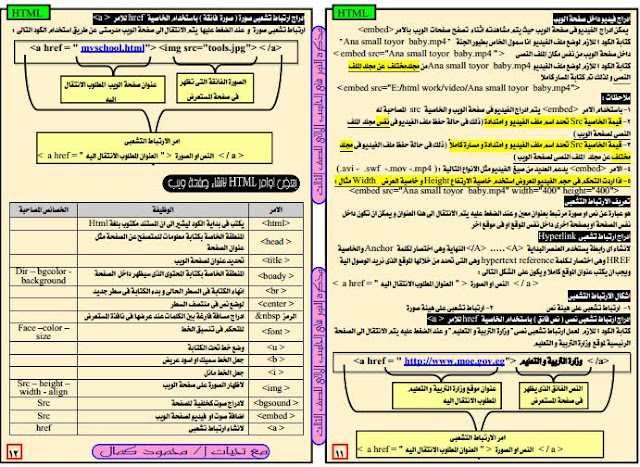 HTML
ادراج فيديو داخل صفحة الويب
يمكن إدراج الفيديو في صفحة الويب حيث يتم مشاهدته أثناء تصفح صفحات الويب بالأمر <embed>
كتابة الكود اللازم لوضع ملف الفيديو انا سمول الخاص بطيور الجنة "Ana small toyor baby.mp4"
داخل صفحة الويب من نفس مكان الملف النصي <embed src="Ana small toyor baby.mp4">
كتابة الكود اللازم لوضع ملف الفيديو Ana small toyor baby.mp4 من مجلد مختلف عن مجلد الملف
النصي ولذلك تم كتابة المسار كاملاً
<embed src="E:/html work/video/Ana small toyor baby.mp4">
ملاحظات :
١- باستخدام الأمر <embed> يتم ادراج الفيديو في صفحة الويب و الخاصية src المصاحبة له
٢- قيمة الخاصية Src تحدد اسم ملف الفيديو و امتداده (ذلك في حالة حفظ ملف الفيديو في نفس مجلد الملف
النصي لصفحة الويب)
٣- قيمة الخاصية Src تحدد اسم ملف الفيديو و امتداده و مساره كاملاً (ذلك في حالة حفظ ملف الفيديو في مجلد
مختلف عن مجلد الملف النصي لصفحة الويب)
٤- الأمر <embed> يدعم العديد من صيغ الفيديو مثل الأنواع التالية : (.avi - .swf -.mov -.mp4)
٥- إذا اردت التحكم في حجم الفيديو المعروض استخدم خاصية الارتفاع Height و خاصية العرض Width مثال :
<embed src="Ana small toyor baby.mp4" width="400" height="400">
تعريف الارتباط التشعبي
هو عبارة عن نص او صورة مرتبط بعنوان معين و عند الضغط عليه يتم الانتقال الى هذا العنوان و يمكن ان تكون داخل
نفس الصفحة او بصفحة اخرى داخل نفس الموقع او في موقع اخر
ادراج ارتباط تشعبي Hyperlink
لانشاء اي رابطة يستخدم العنصر البداية <A> ..... </A> النهاية وهي اختصار لكلمة Anchor والخاصية
HREF وهى اختصار لكلمة hypertext reference وهى التى تحدد من خلالها الموقع الذى نريد الوصول اليه
ويجب ان يكتب عنوان الموقع كاملا ويكون على الشكل التالى :
< a href = " العنوان المطلوب الانتقال اليه " > النص او الصورة < / a >
اشكال الارتباط التشعبي
١- ارتباط تشعبي على هيئة نص ٢- ارتباط تشعبي على هيئة صورة
ادراج ارتباط تشعبي نصي (نص فائق) باستخدام الخاصية href للامر < a >
كتابة الكود اللازم لعمل ارتباط تشعبي نصي "وزارة التربية و التعليم" و عند الضغط عليه يتم الانتقال الى الصفحة
الرئيسية لموقع وزارة التربية و التعليم.
<a href = " http://www.moe.gov.eg"> وزارة التربية و التعليم </a>
النص الفائق الذي يظهر في صفحة المستعرض
عنوان موقع وزارة التربية و التعليم المطلوب الانتقال اليه
امر الارتباط التشعبي
< a href = " العنوان المطلوب الانتقال اليه " > النص او الصورة < / a >
١١
HTML
ادراج ارتباط تشعبي صورة (صورة فائقة) باستخدام الخاصية href للامر < a >
ارتباط تشعبي صورة و عند الضغط عليها يتم الانتقال الى صفحة الويب مدرستي عن طريق استخدام الكود التالى :
<a href = " myschool.html"> <img src="tools.jpg"> </a>
الصورة الفائقة التى تظهر فى صفحة المستعرض
عنوان صفحة الويب المطلوب الانتقال اليه
امر الارتباط التشعبي
< a href = " العنوان المطلوب الانتقال اليه " > النص او الصورة < / a >
بعض اوامر HTML لانشاء صفحة ويب
الامر الوظيفة الخصائص المصاحبة
<html> يكتب فى بداية الكود ليشير الى ان المستند مكتوب بلغة Html
<head> المنطقة الخاصة بكتابة معلومات للمتصفح عن الصفحة مثل عنوان الصفحة
<title> تحديد عنوان لصفحة الويب
<boady> المنطقة الخاصة بكتابة المحتوى الذى سيظهر داخل الصفحة Dir – bgcolor - background
<br> انهاء الكتابة فى السطر الحالى و بدء الكتابة فى سطر جديد
<center> لوضع نص فى منتصف السطر
الرمز &nbsp ادراج مسافة فارغة بين الكلمات عند عرضها فى نافذة المستعرض
<font> للتحكم فى تنسيق الخط Face –color – size
<u> وضع خط تحت الكتابة
<b> جعل الخط سميك او اسود عريض
<i> جعل الخط مائل
<img> لاظهار الصورة على صفحة الويب Src – height – width - align
<bgsound> لادراج صوت كخلفية للصفحة Src
<embed> اضافة صوت او فيديو لصفحة الويب Src
<a> لانشاء ارتباط تشعبي href
مع تحيات أ/ محمود كمال
١٢